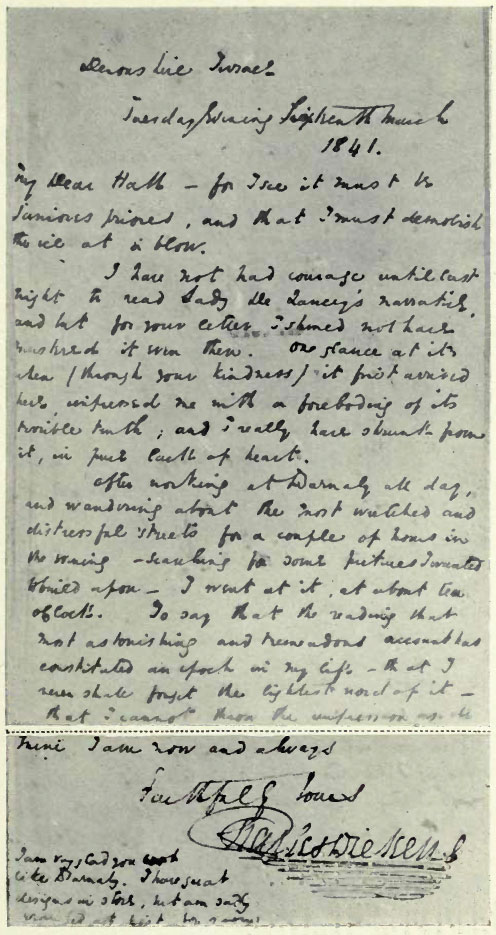 Devonshire Terrace
Tuesday Evening Sixteenth March
1841.
My Dear Hall – for I see it must be
"junioribus priores", and that I must demolish
the ice at a blow.
I have not had courage until last
night to read Lady De Lancey's narrative,
and but for your letter I should not have
mustered it even then. One glance at it
when (through your kindness) it first arrived
here, impressed me with a foreboding of its
terrible truth; and I really have shrunk from
it, in pure lack of heart.
After working at Barnaby all day,
and wandering about the most wretched and
distressful streets for a couple of hours in
the evening – searching for some pictures I wanted
to build upon – I went at it, at about ten
o'Clock. To say that the reading that
most astonishing and tremendous account has
constituted an epoch in my life – that I
never shall forget the lightest word of it –
that I cannot throw the impression aside
mine I am now and always
Faithfully Yours
Charles Dickens
I am very glad you
like Barnaby. I have great
designs in store, but am sadly
at first for